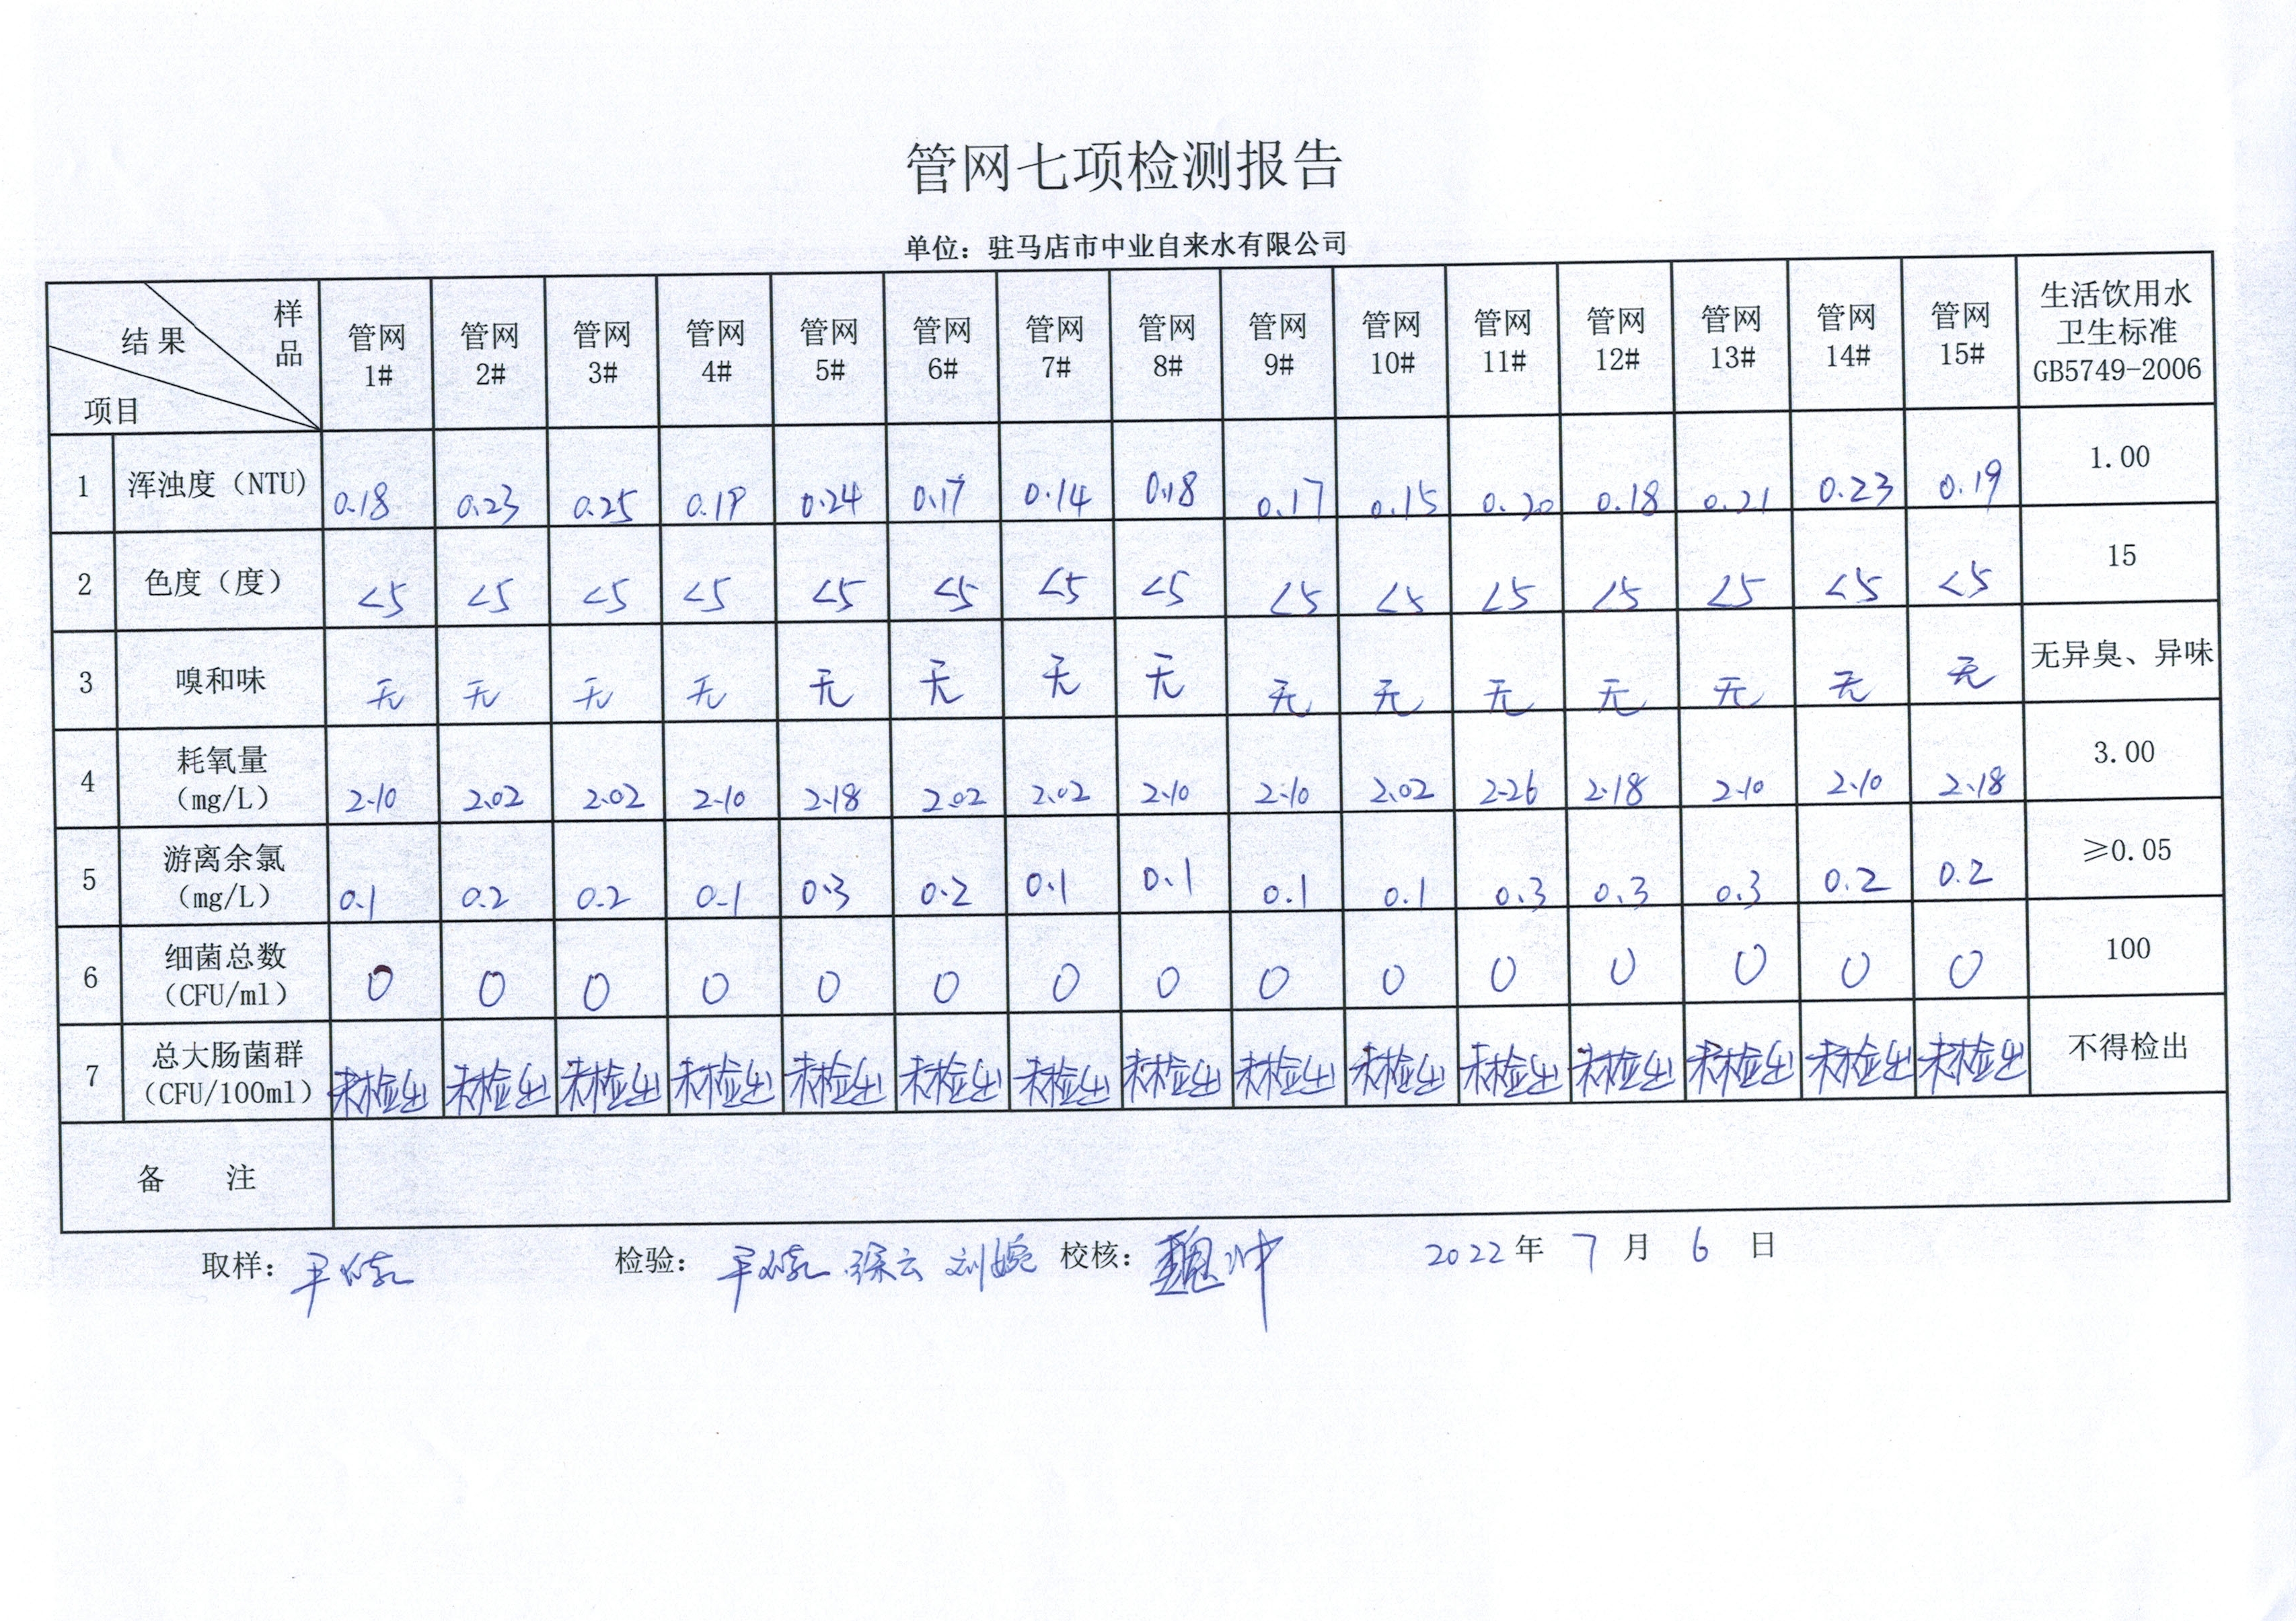 管网七项检测报告
单位：驻马店市中业自来水有限公司
结果 样品 项目 管网1# 管网2# 管网3# 管网4# 管网5# 管网6# 管网7# 管网8# 管网9# 管网10# 管网11# 管网12# 管网13# 管网14# 管网15# 生活饮用水卫生标准GB5749-2006
1 浑浊度（NTU) 0.18 0.23 0.25 0.19 0.24 0.17 0.14 0.18 0.17 0.15 0.20 0.18 0.21 0.23 0.19 1.00
2 色度（度） <5 <5 <5 <5 <5 <5 <5 <5 <5 <5 <5 <5 <5 <5 <5 15
3 嗅和味 无 无 无 无 无 无 无 无 无 无 无 无 无 无 无 无异臭、异味
4 耗氧量（mg/L） 2.10 2.02 2.02 2.10 2.18 2.02 2.02 2.10 2.10 2.02 2.26 2.18 2.10 2.10 2.18 3.00
5 游离余氯（mg/L） 0.1 0.2 0.2 0.1 0.3 0.2 0.1 0.1 0.1 0.1 0.3 0.3 0.3 0.2 0.2 ≥0.05
6 细菌总数（CFU/ml） 0 0 0 0 0 0 0 0 0 0 0 0 0 0 0 100
7 总大肠菌群（CFU/100ml） 未检出 未检出 未检出 未检出 未检出 未检出 未检出 未检出 未检出 未检出 未检出 未检出 未检出 未检出 未检出 不得检出
备 注
取样： 检验： 刘婉 校核： 魏冲 2022年 7 月 6 日